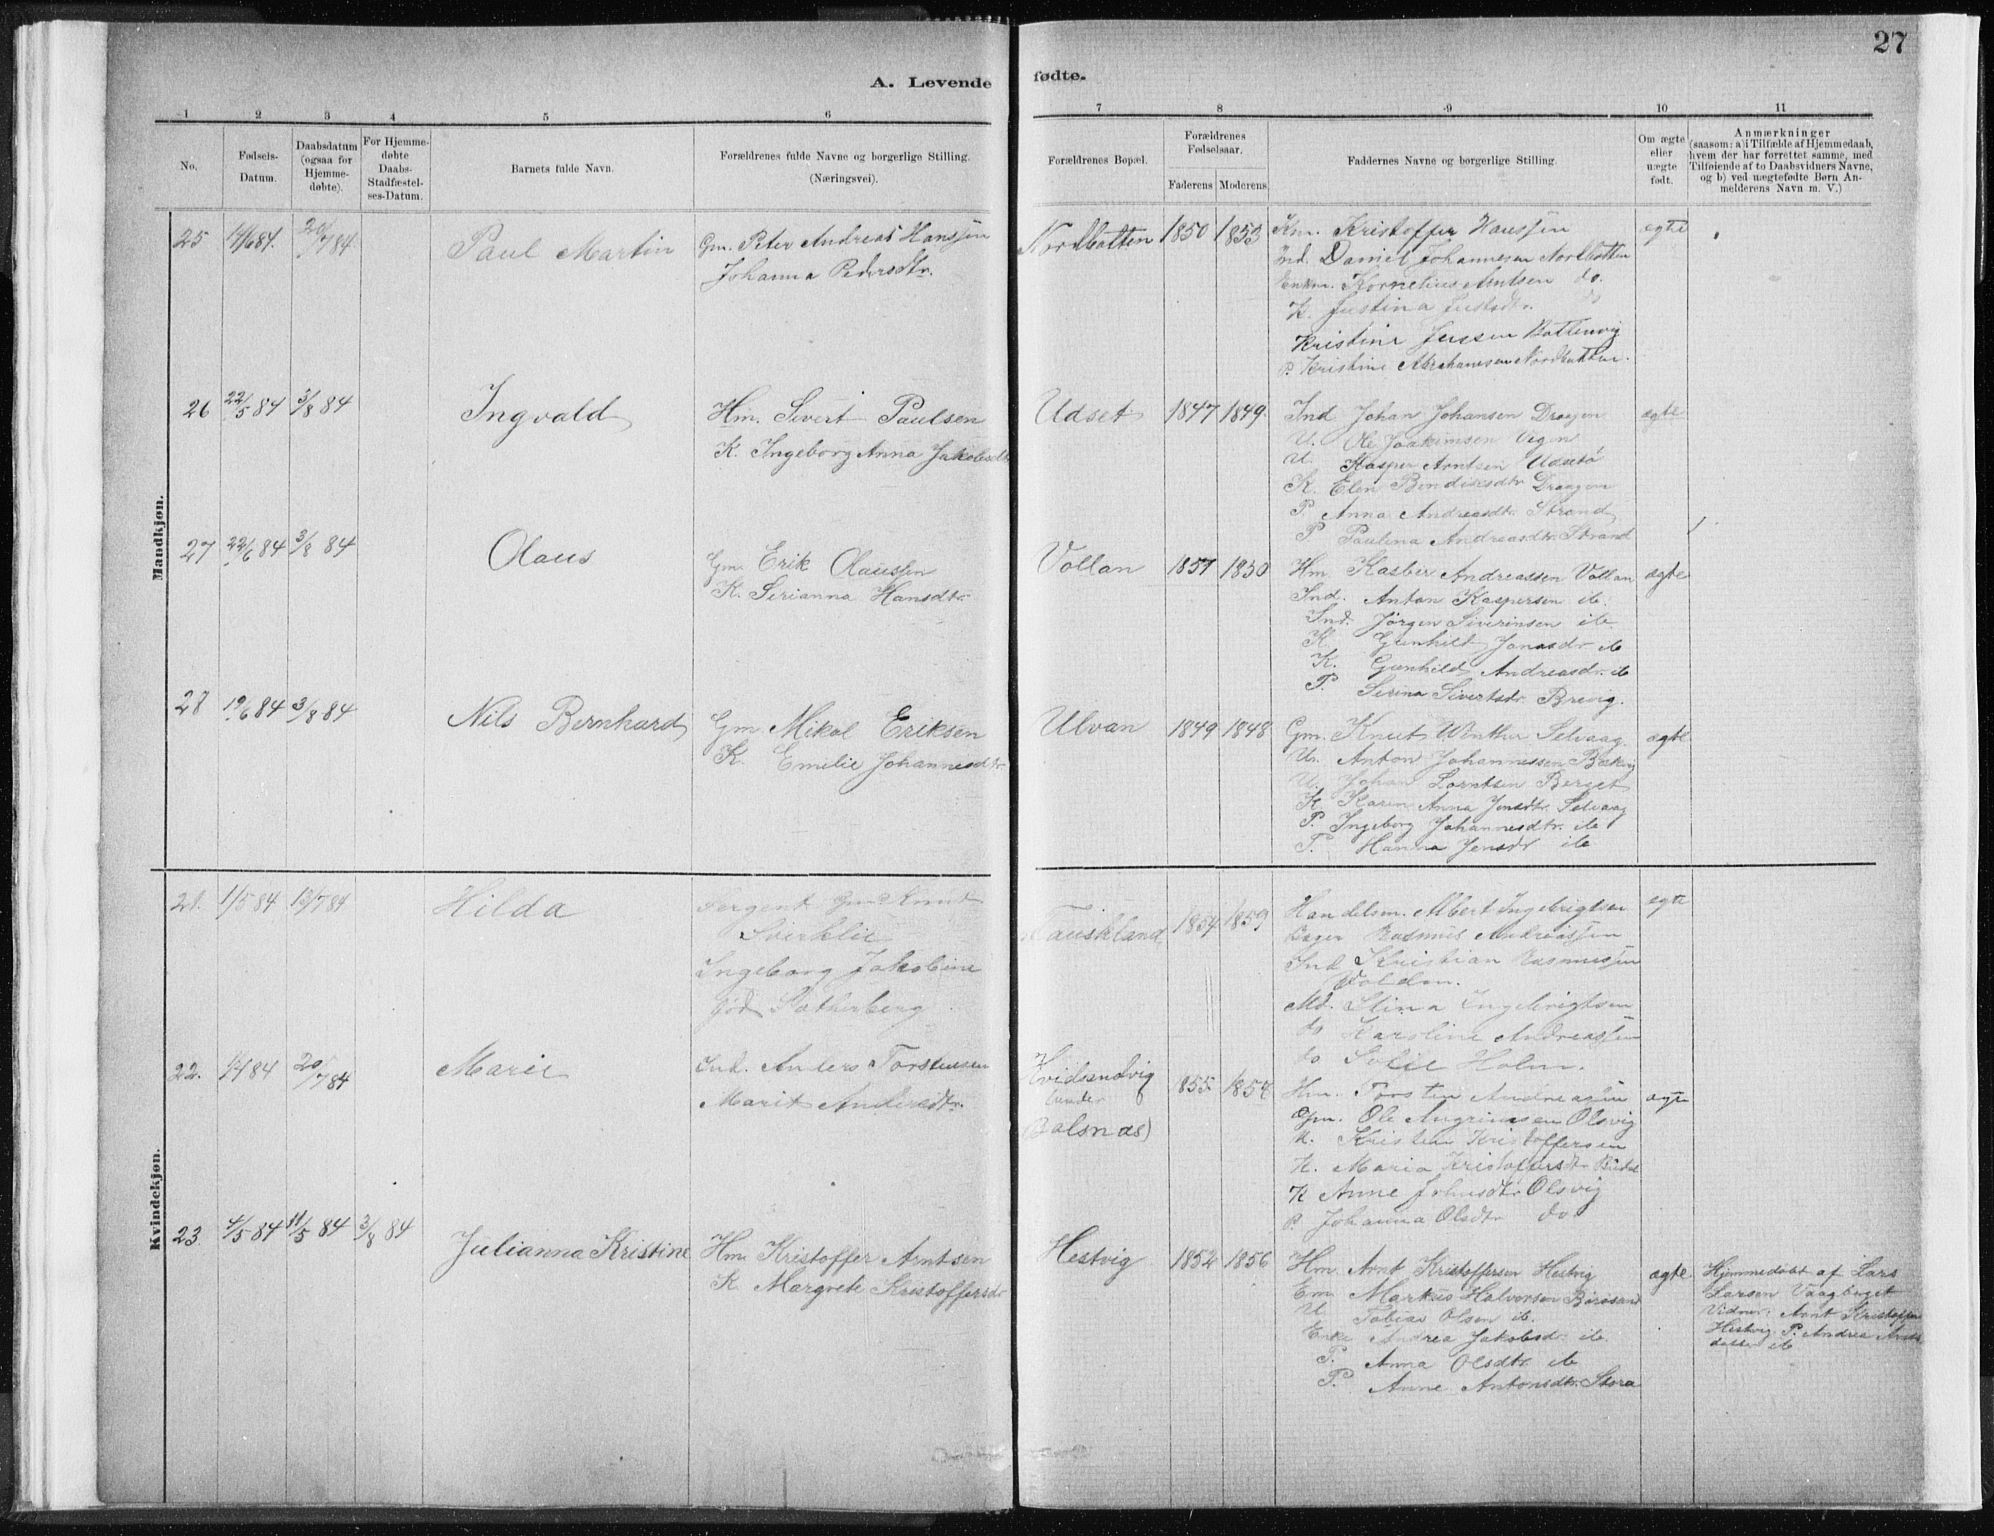 27
A. Levende fødte.
1 2 3 4 5 6 7 8 9 10 11
No.
Fødsels-
Datum.
Daabsdatum
(ogsaa for
Hjemme-
døbte).
For Hjemme-
døbte
Daabs-
Stadfæstel-
ses-Datum.
Barnets fulde Navn.
Forældrenes fulde Navne og borgerlige Stilling.
(Næringsvei).
Forældrenes Bopæl.
Forældrenes
Fødselsaar.
Faderens Moderens
Faddernes Navne og borgerlige Stilling.
Om ægte
eller
uægte
født.
Anmærkninger
(saasom: a) i Tilfælde af Hjemmedaab,
hvem der har forrettet samme, med
Tilføiende af to Daabsvidners Navne,
og b) ved uægtefødte Børn An-
melderens Navn m. V.)
Mandkjøn.
25 14/6 84. 20/7 84 Paul Martin
Gm. Peter Andreas Hanssen
Johanna Pedersdtr.
Nordbotten 1850 1853
Km. Kristoffer Hanssen
Ind. Daniel Johannesen Nordbotten
Enkm. Kornelius Arntsen do.
K. Justina Justsdtr. do
Kristine Jenssen Bottenvig
P. Kristine Abrahamsen Nordbotten.
ægte
26 22/5 84 3/8 84 Ingvald
Hm. Sivert Paulsen
K. Ingeborg Anna Jakobsdtr
Udset 1847 1849.
Ind Johan Johansen Draagen
U. Ole Joakimsen Vegen
U. Kasper Arntsen Udset
K. Elen Bendiksdtr Draagen
P. Anna Andreasdtr. Strand
P Paulina Andreasdtr. Strand
ægte
27 22/6 84 3/8 84 Olaus
Gm. Erik Olaussen
K. Serianna Hansdtr.
Vollan 1857 1850
Hm. Kasber Andreassen Vollan
Ind. Anton Kaspersen ib.
Ind. Jørgen Siverinsen ib.
K. Gunhild Jonasdr. ib
K. Gunhild Andreasdr. ib
P. Serina Sivertsdr. Brevig.
ægte
28 19/6 84 3/8 84 Nils Bernhard
Gm. Mikal Eriksen
K. Emilie Johannesdtr
Ulvan 1849 1848
Gm. Knut Winther Selvaag.
U. Anton Johannessen
U. Johan Lorntsen Berget
K Karen Anna Jensdtr. Selvaag
P. Ingeborg Johannesdtr. ib
P. Hanna Jensdr ib
ægte
Kvindekjøn.
21. 1/5 84 13/7 84 Hilda
Sergent Gm Knut
Ingeborg Jakobine
født Sotherberg
1854 1859
Handelsm. Albert Ingebrigtsen
Rasmus Andreassen
Ind Kristian Rasmussen
Md. Stina Ingebrigtsen
do Karoline Andreassen
do Holm.
ægte
22. 1/4 84 20/7 84 Marie
Ind. Anders Torstensen
Marit Andersdtr.
Kvidsandvig
(under
Balsnæs)
1855 1857
Hm. Torsten Andreassen
Gm. Ole Angrimsen Olsvig
U. Kristen Kristoffersen
K. Maria Kristoffersdtr
K Anne Johnsdtr. Olsvig
P. Johanna Olsdtr do
ægte
23. 4/5 84 11/5 84 3/8 84 Julianna Kristine
Hm. Kristoffer Arntsen
K. Margrete Kristoffersdr
Hestvig 1852 1856
Hm. Arnt Kristoffersen Hestvig
Em Markus Halvorsen Børøsund
U Tobias Olsen ib.
Enke Andrea Jakobsdr. ib.
P. Anna Olsdtr. ib
P. Anne Antonsdtr. Stora
ægte
Hjemmedøbt af Lars
Larsen Vaagbuget
Vidner: Arnt Kristoffer
Hestvig. P. Andrea
datter ib